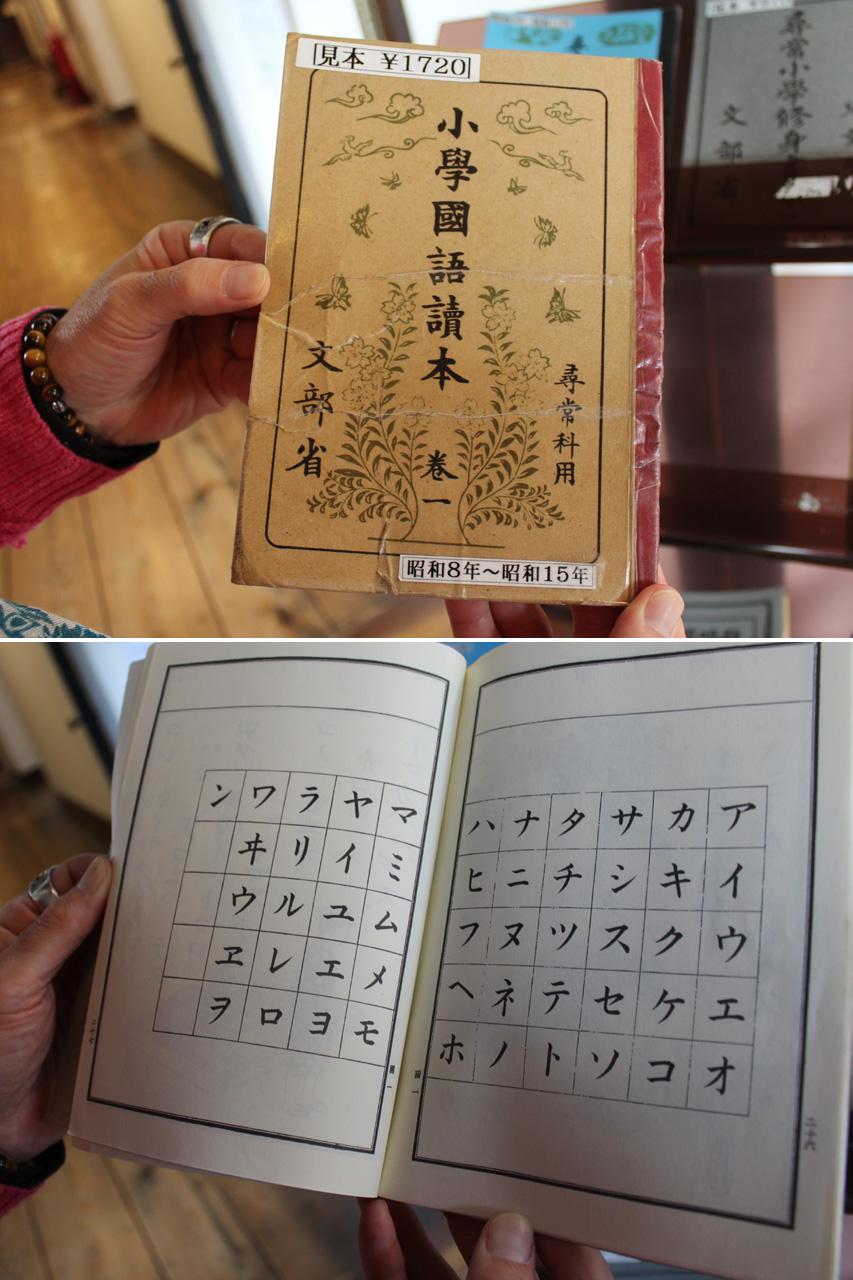 見本 ¥1720
小學國語讀本 卷一
尋常科用
文部省
昭和8年～昭和15年
尋常小學修身
文部省
アイウエオ
カキクケコ
サシスセソ
タチツテト
ナニヌネノ
ハヒフヘホ
二十六
マミムメモ
ヤイユエヨ
ラリルレロ
ワヰウヱヲ
ン
二十七